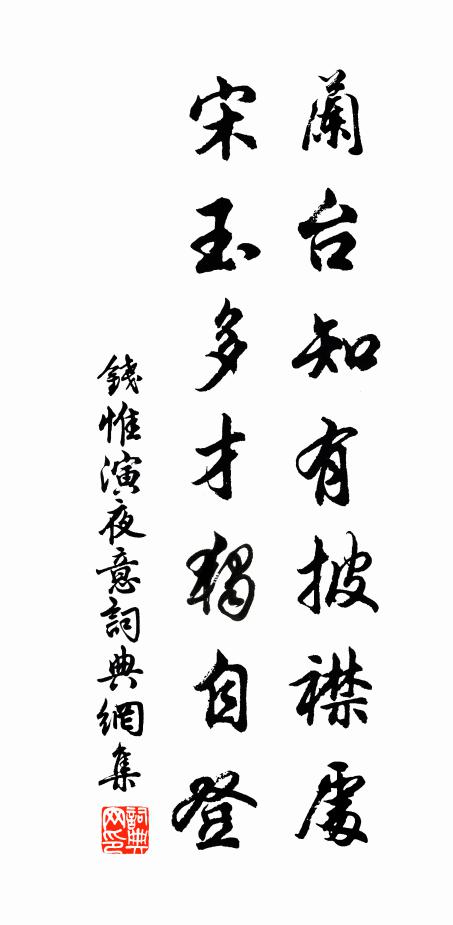 蘭台知有披襟處
宋玉多才獨自登
錢惟演夜意詞典網集
詞典網印